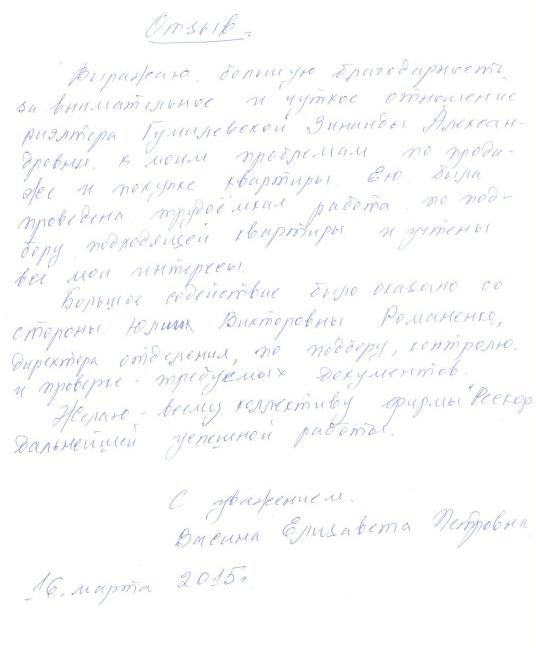 Отзыв.
Выражаю большую благодарность
за внимательное и чуткое отношение
риэлтера Гумилевской Зинаиды Алексан-
дровны к моим проблемам по прода-
же и покупке квартиры. Ею была
проведена трудоёмкая работа по под-
бору подходящей квартиры и учтены
все мои интересы.
Большое содействие было оказано со
стороны Юлии Викторовны Романенко,
директора отделения, по подбору, контролю
и проверке требуемых документов.
Желаю всему коллективу фирмы "Рескор
дальнейшей успешной работы.
С уважением.
Васина Елизавета Петровна
16. марта 2015г.